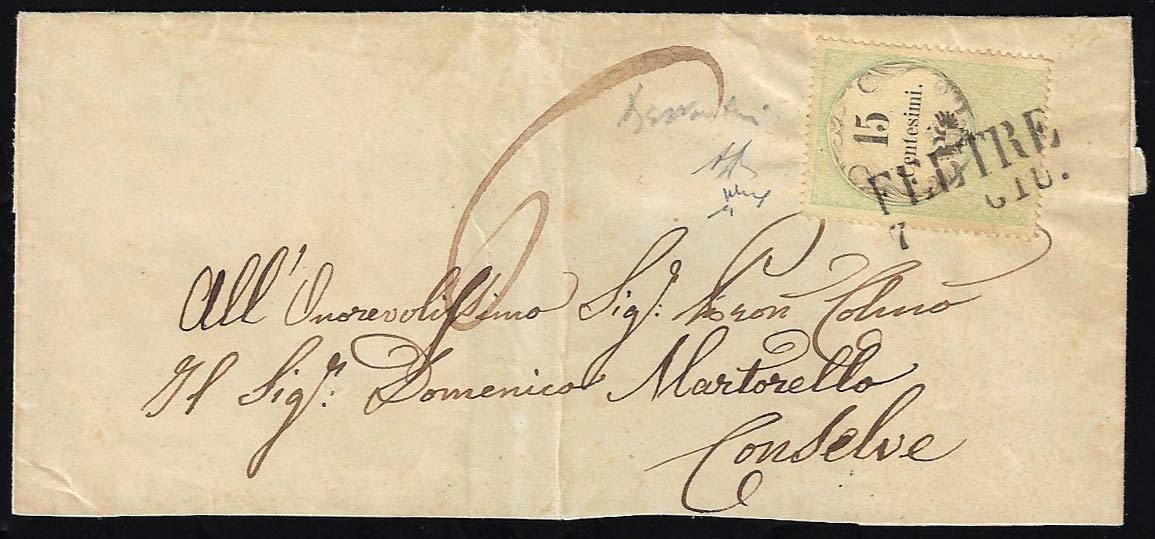 15
Centesimi.
FELTRE
7 GIU.
All' Onorevolissimo Sig.r Pron Colmo
Il Sig.r Domenico Martorello
Conselve